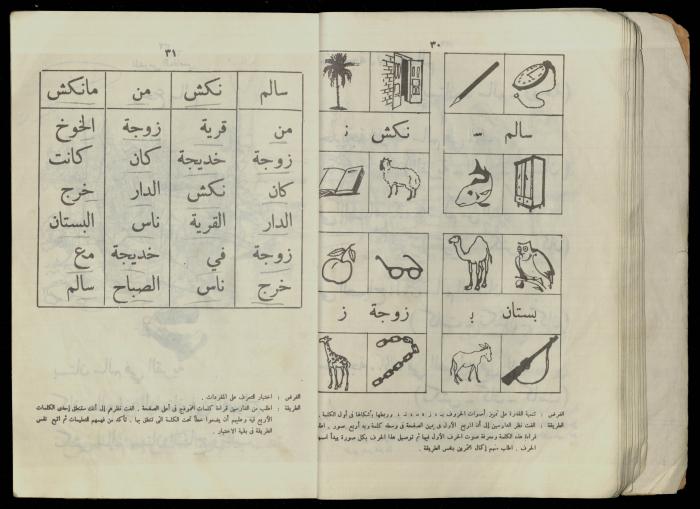 ٣٠
سالم س
نكش ن
بستان ب
زوجة ز
الغرض : تنمية القدرة على تمييز أصوات الحروف
الطريقة : الفت نظر الدارسين إلى أن المربع الأول في يمين الصفحة في وسطه كلمة وبه أربع صور . اطلب
قراءة هذه الكلمة ومعرفة صوت الحرف الأول فيها ثم توصيل هذا الحرف بكل صورة يبدأ اسمها
الحرف . اطلب منهم إكمال التمرين بنفس الطريقة .
٣١
سالم نكش من مانكش
من قرية زوجة الخوخ
زوجة خديجة كان كانت
كان نكش الدار خرج
الدار القرية ناس البستان
زوجة في خديجة مع
خرج ناس الصباح سالم
الغرض : اختبار التعرف على المفردات .
الطريقة : اطلب من الدارسين قراءة كلمات المجموع في أعلى الصفحة . الفت نظرهم إلى أنك ستنطق إحدى الكلمات
الأربع فيه وعليهم أن يضعوا خطاً تحت الكلمة التي تنطق بها . تأكد من فهمهم التعليمات ثم اتبع نفس
الطريقة في بقية الاختبار .